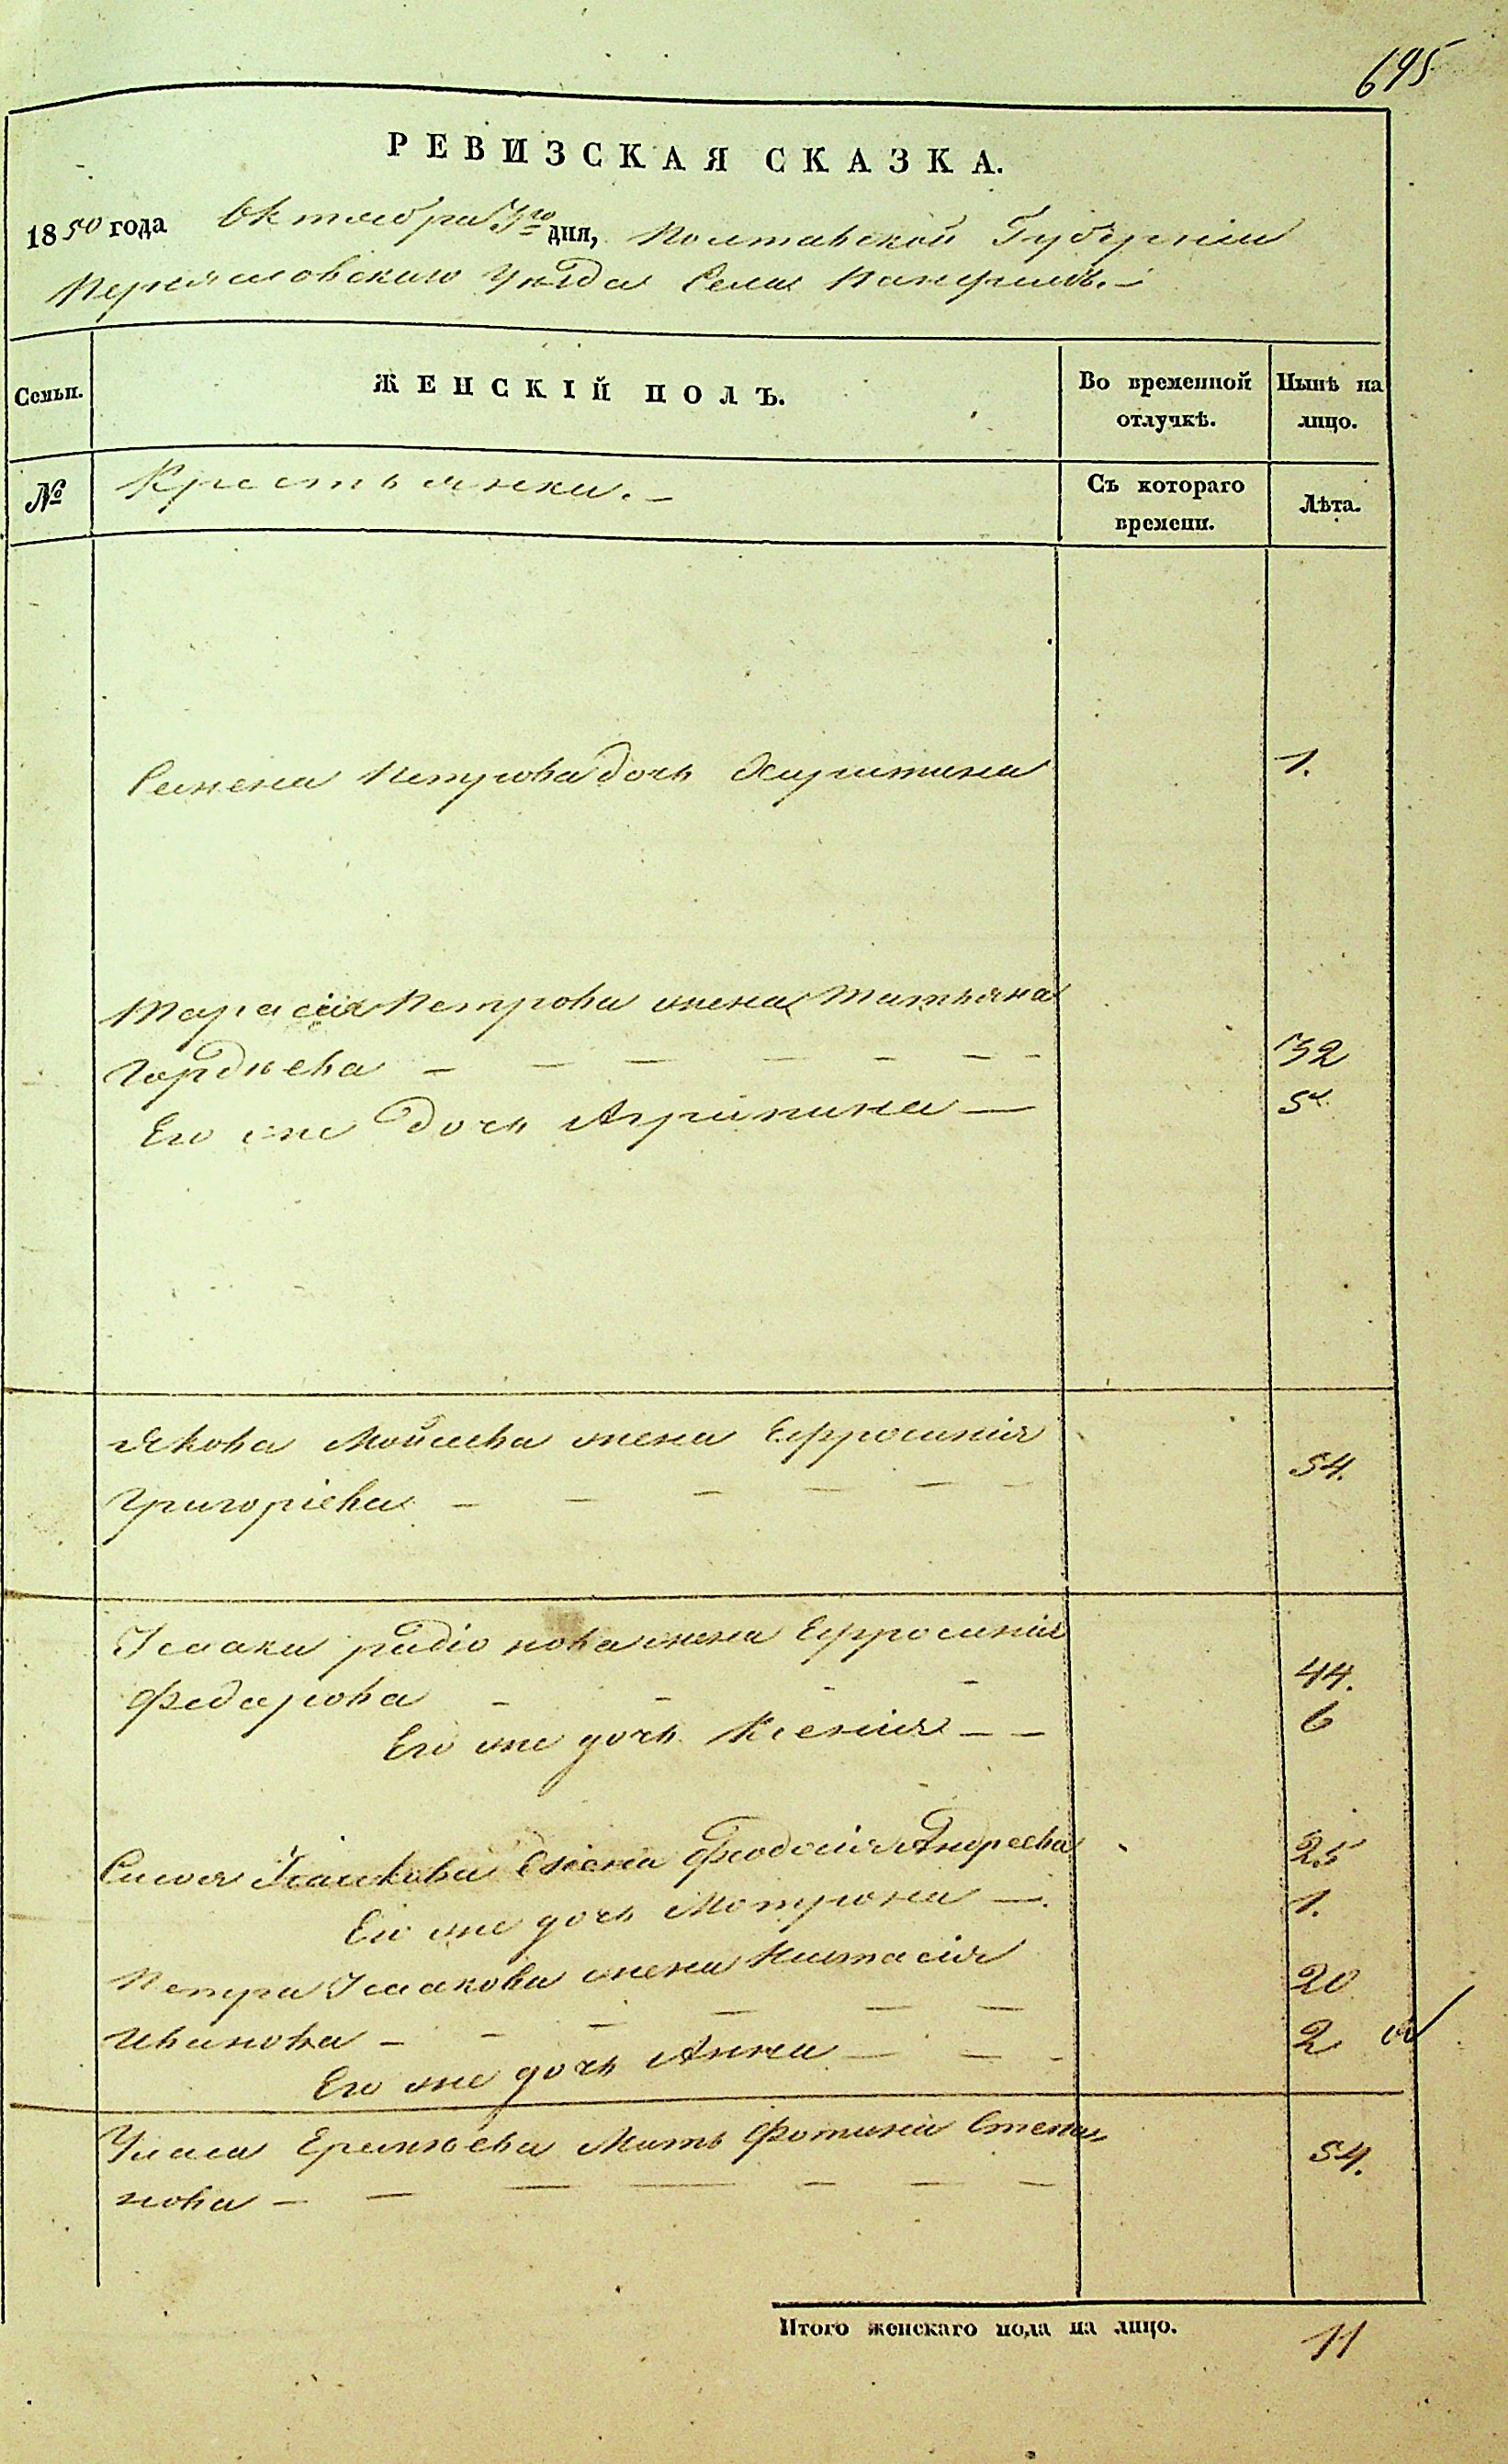 695
РЕВИЗСКАЯ СКАЗКА.
1850 года Октября 3го дня, Полтавской Губерніи
Переяславскаго Уѣзда Села Панфилъ.
Семьи. ЖЕНСКІЙ ПОЛЪ. Во временной отлучкѣ. Нынѣ на лицо.
№ Крестьянки. Съ котораго времени. Лѣта.
Семена Петрова дочь Христина 1.
Тарасія Петрова жена Татьяна
Гордѣева 32
Его же дочь Агрипина 5
Якова Мойсеева жена Ефросинія
Григоріева 54.
Исаака жена Ефросинія
Федорова 44.
Его же дочь Ксенія 6
Сысоя Исаакова жена Феодосія Андреева 25
Его же дочь Мотрона 1.
Петра Исаакова жена Настасія 20
Иванова
Его же дочь Анна 2
Мать Фотинія Степа- 54.
нова
Итого женскаго пола на лицо. 11